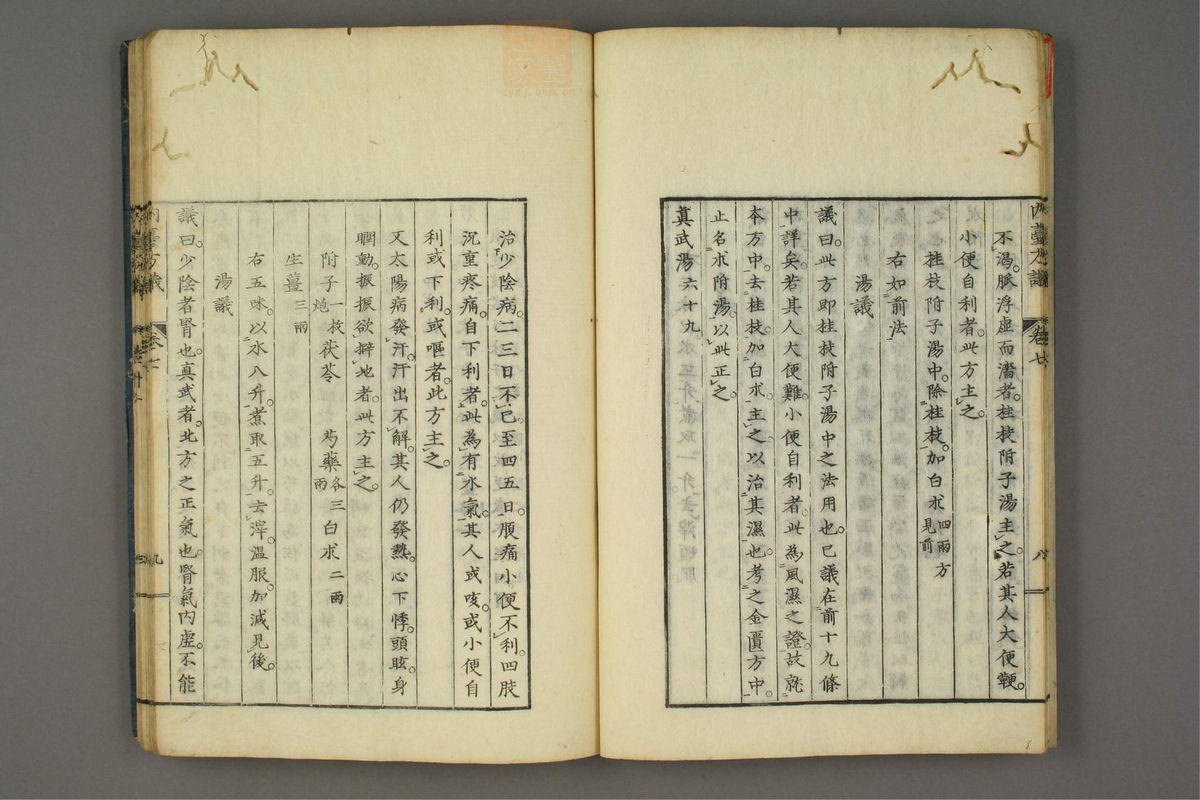 內臺方議 卷七 八
不渴脈浮虛而濇者桂枝附子湯主之若其人大便鞕
小便自利者此方主之
桂枝附子湯中除桂枝加白朮四兩方見前
右如前法
湯議
議曰此方即桂枝附子湯中之法用也已議在前十九條
中詳矣若其人大便難小便自利者此為風濕之證故就
本方中去桂枝加白朮主之以治其濕也考之金匱方中
止名朮附湯以此正之
真武湯六十九
治少陰病二三日不已至四五日腹痛小便不利四肢
沉重疼痛自下利者此為有水氣其人或咳或小便自
利或下利或嘔者此方主之
又太陽病發汗汗出不解其人仍發熱心下悸頭眩身
瞤動振振欲擗地者此方主之
附子一枚炮 茯苓 芍藥各三兩 白朮二兩
生薑三兩
右五味以水八升煮取五升去滓溫服加減見後
湯議
議曰少陰者腎也真武者北方之正氣也腎氣內虛不能